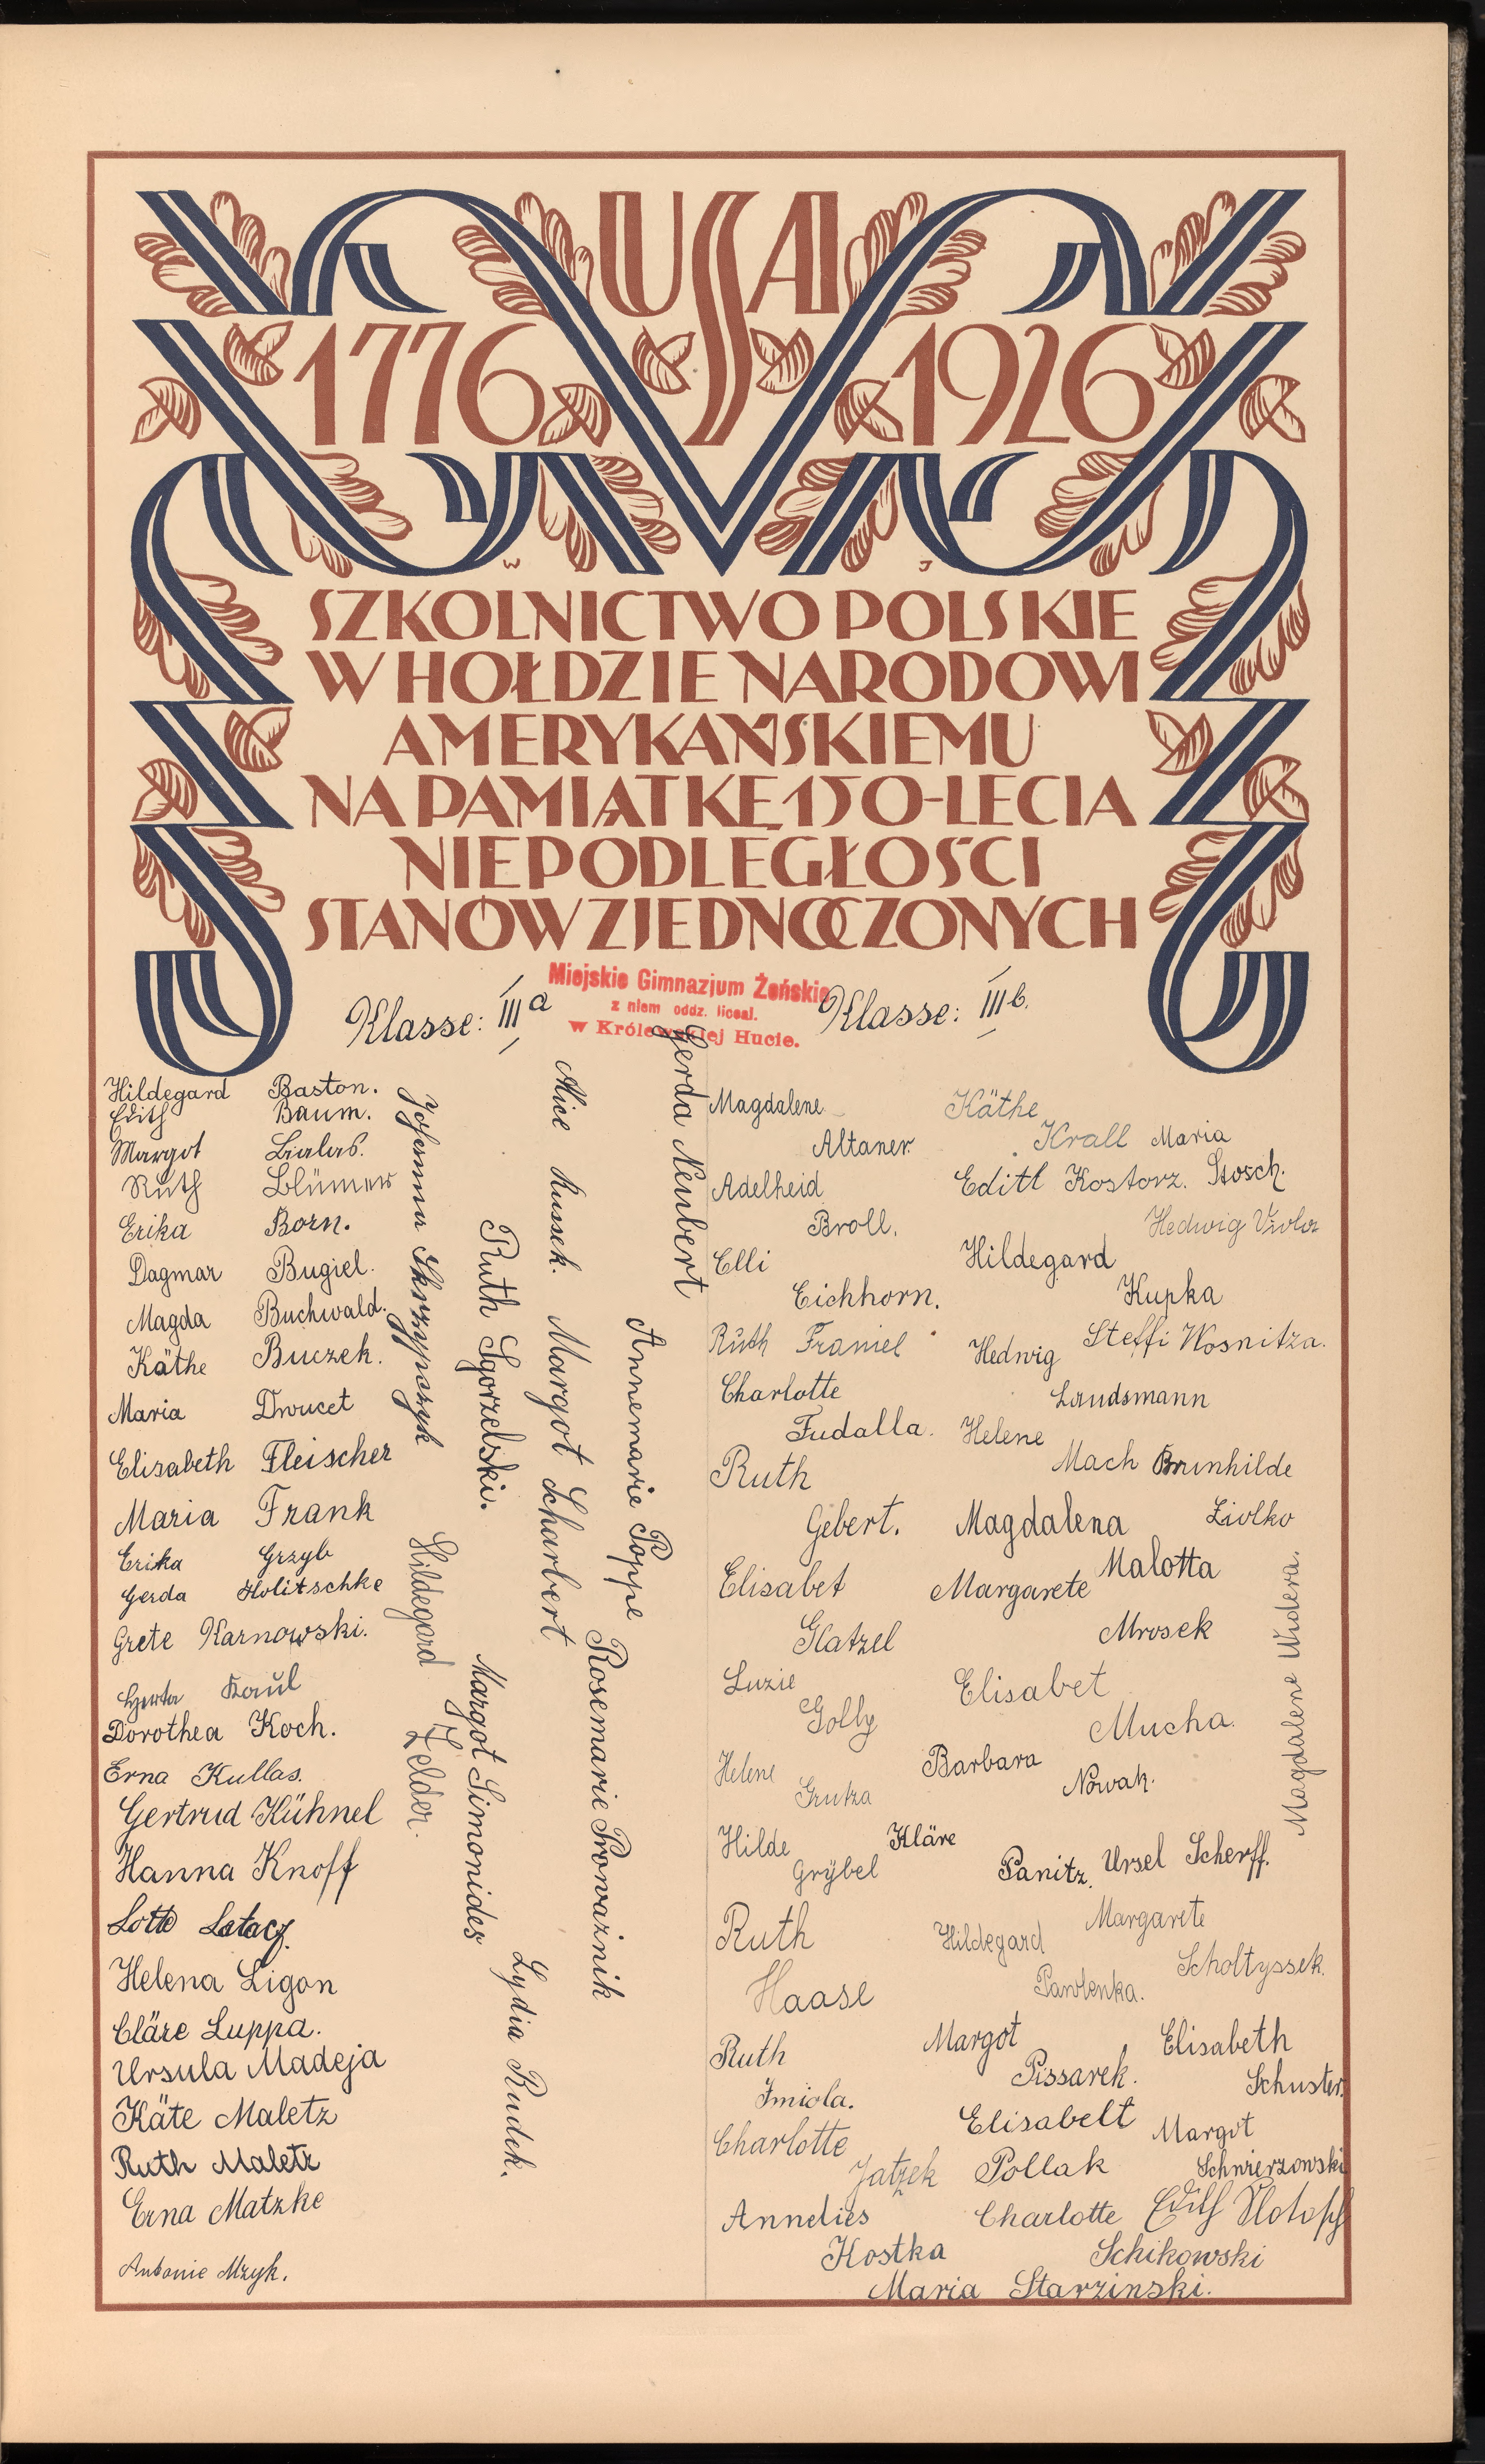 USA
1776 1926
W J
SZKOLNICTWO POLSKIE
W HOŁDZIE NARODOWI
AMERYKAŃSKIEMU
NA PAMIĄTKĘ 150-LECIA
NIEPODLEGŁOŚCI
STANÓW ZJEDNOCZONYCH
Miejskie Gimnazjum Żeńskie
z niem oddz. liceal.
w Królewskiej Hucie.
Klasse: III a
Hildegard Baston.
Edith Baum.
Margot Bialas.
Ruth Blümer
Erika Born.
Dagmar Bugiel.
Magda Buchwald.
Käthe Buczek.
Maria Drucet
Elisabeth Fleischer
Maria Frank
Erika Grzyb
Gerda Holitschke
Grete Karnowski.
Herta Kaul
Dorothea Koch.
Erna Kullas.
Gertrud Kühnel
Hanna Knoff
Lotte Latacz.
Helena Ligon
Cläre Luppa.
Ursula Madeja
Käte Maletz
Ruth Maletz
Erna Matzke
Antonie Mzyk.
Johanna Skrzypczyk
Hildegard Zelder.
Ruth Sgorzelski.
Margot Simonides
Lydia Rudek.
Alice Russek.
Margot Scharbert
Rosemarie Prowaznik
Annemarie Poppe
Gerda Neubert
Klasse: III b.
Magdalene
Altaner.
Adelheid
Broll.
Elli
Eichhorn.
Ruth Framel
Charlotte
Fudalla.
Ruth
Gebert.
Elisabet
Glatzel
Luzie
Golly
Helene
Grutza
Hilde
Grÿbel
Ruth
Haase
Ruth
Imiola.
Charlotte
Jatzek
Annelies
Kostka
Käthe
Krall
Edith Kostorz.
Hildegard
Kupka
Hedwig
Landsmann
Helene
Mach
Magdalena
Malotta
Margarete
Mrosek
Elisabet
Mucha.
Barbara
Nowak.
Kläre
Panitz.
Hildegard
Pawlenka.
Margot
Pissarek.
Elisabeth
Pollak
Charlotte
Schikowski
Maria Starzinski.
Maria
Stosch.
Hedwig Viola
Steffi Wosnitza.
Brunhilde
Ziolko
Magdalene Widera.
Ursel Scherff.
Margarete
Scholtyssek.
Elisabeth
Schuster.
Margot
Schwierzowski
Edith